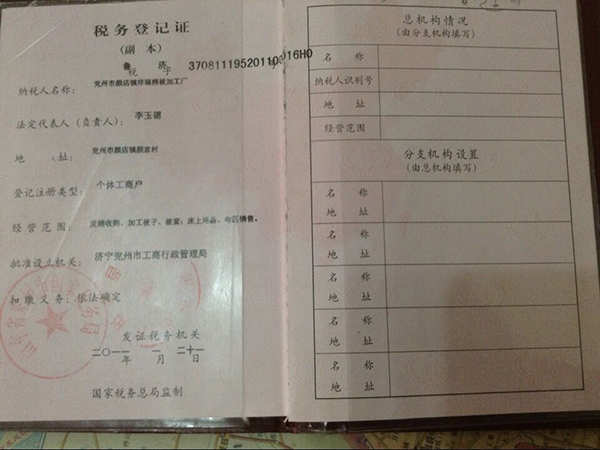 税务登记证
(副本)
鲁 济
税 字 37081119520110916H0 号
纳税人名称: 兖州市颜店镇祥瑞棉被加工厂
法定代表人(负责人): 李玉德
地 址: 兖州市颜店镇颜家村
登记注册类型: 个体工商户
经营范围: 皮棉收购、加工被子、被套;床上用品、布匹销售。
批准设立机关: 济宁兖州市工商行政管理局
扣缴义务: 依法确定
发证税务机关
二〇一一年 一月 二十一日
国家税务总局监制
总机构情况
(由分支机构填写)
名 称
纳税人识别号
地 址
经营范围
分支机构设置
(由总机构填写)
名 称
地 址
名 称
地 址
名 称
地 址
名 称
地 址
名 称
地 址